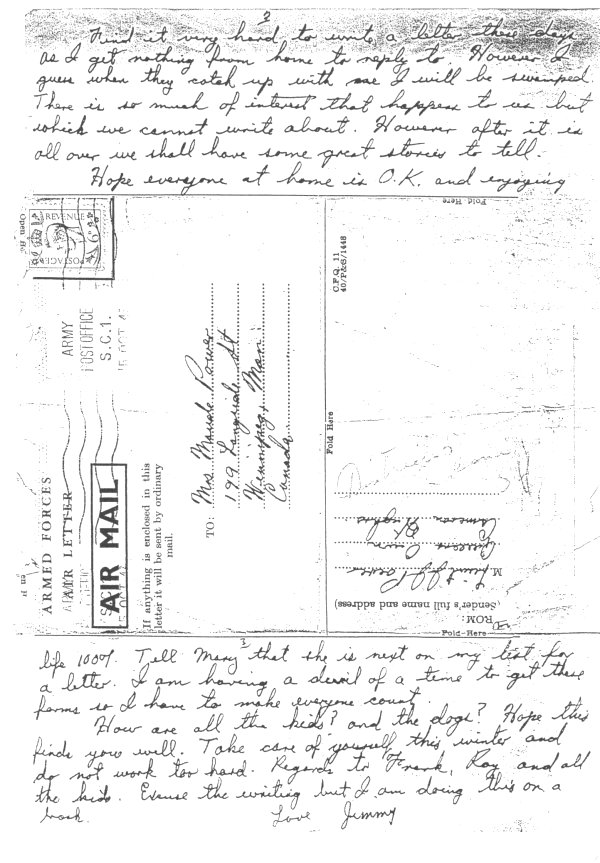 3
Find it very hard to write a letter these days
as I get nothing from home to reply to. However I
guess when they catch up with me I will be swamped
There is so much of interest that happens to us but
which we cannot write about. However after it is
all over we shall have some great stories to tell.
Hope everyone at home is O.K. and enjoying
Fold Here
Open
REVENUE
POSTAGE
6
ARMY
POST OFFICE
S.C.1.
OCT
ARMED FORCES
AIR LETTER
AIR MAIL
If anything is enclosed in this
letter it will be sent by ordinary
mail.
TO:
Mrs Maude Power
199 Langside St
Winnipeg, Man:
Canada
C.F.Q. 11
40/P&S/1448
Fold Here
Cameron Highrs
Queens Own
Lieut J J Power
(Sender's full name and address)
ROM:
Fold-Here
3
life 100%. Tell Mary that she is next on my list for
a letter. I am having a devil of a time to get these
forms so I have to make everyone count.
How are all the kids? and the dogs? Hope this
finds you well. Take care of yourself this winter and
do not work too hard. Regards to Frank, Roy and all
the kids. Excuse the writing but I am doing this on a
book.
Love Jimmy